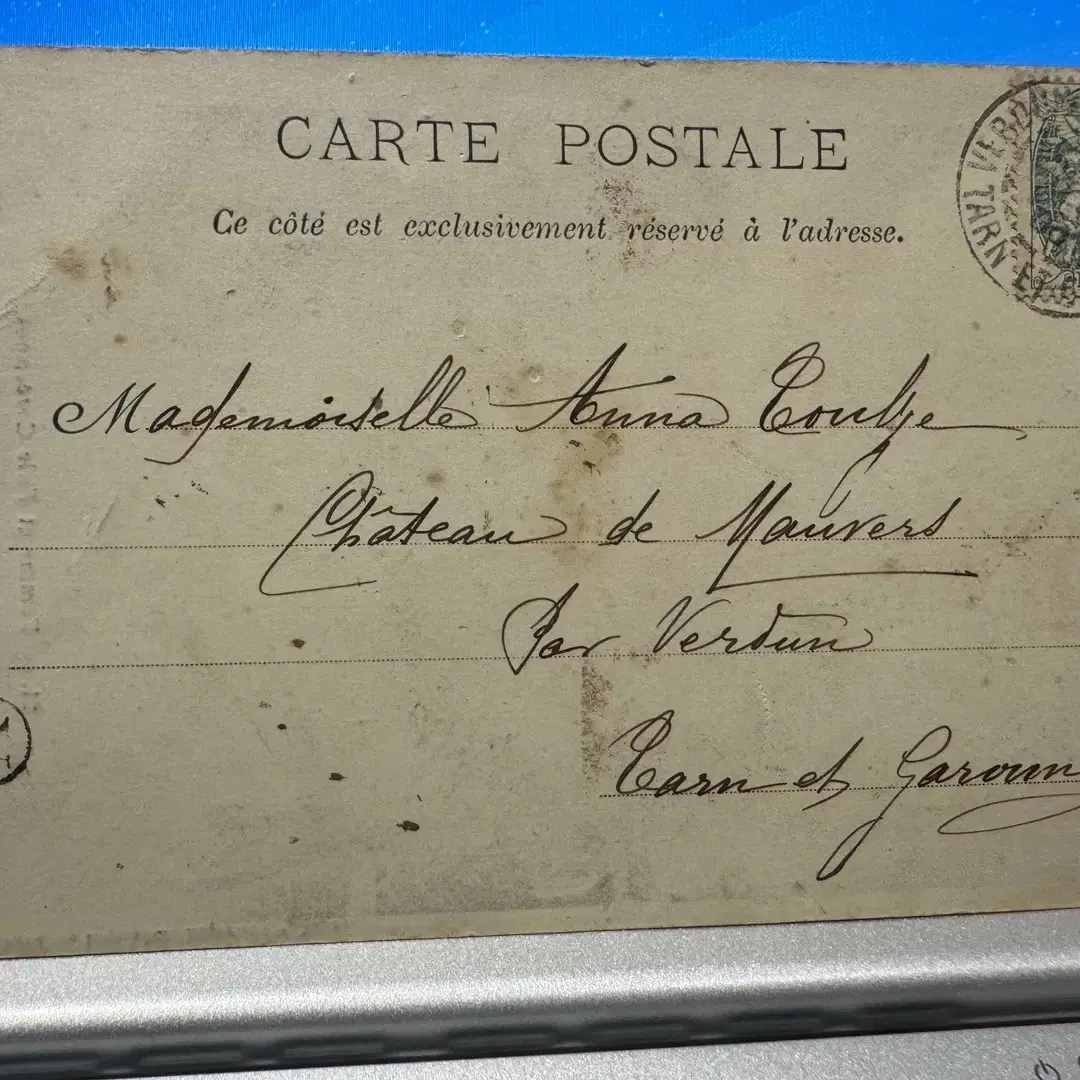 CARTE POSTALE
Ce côté est exclusivement réservé à l'adresse.
VERD
TARN ET
Mademoiselle Anna
Château de Mauvers
Par Verdun
Tarn et Garonn